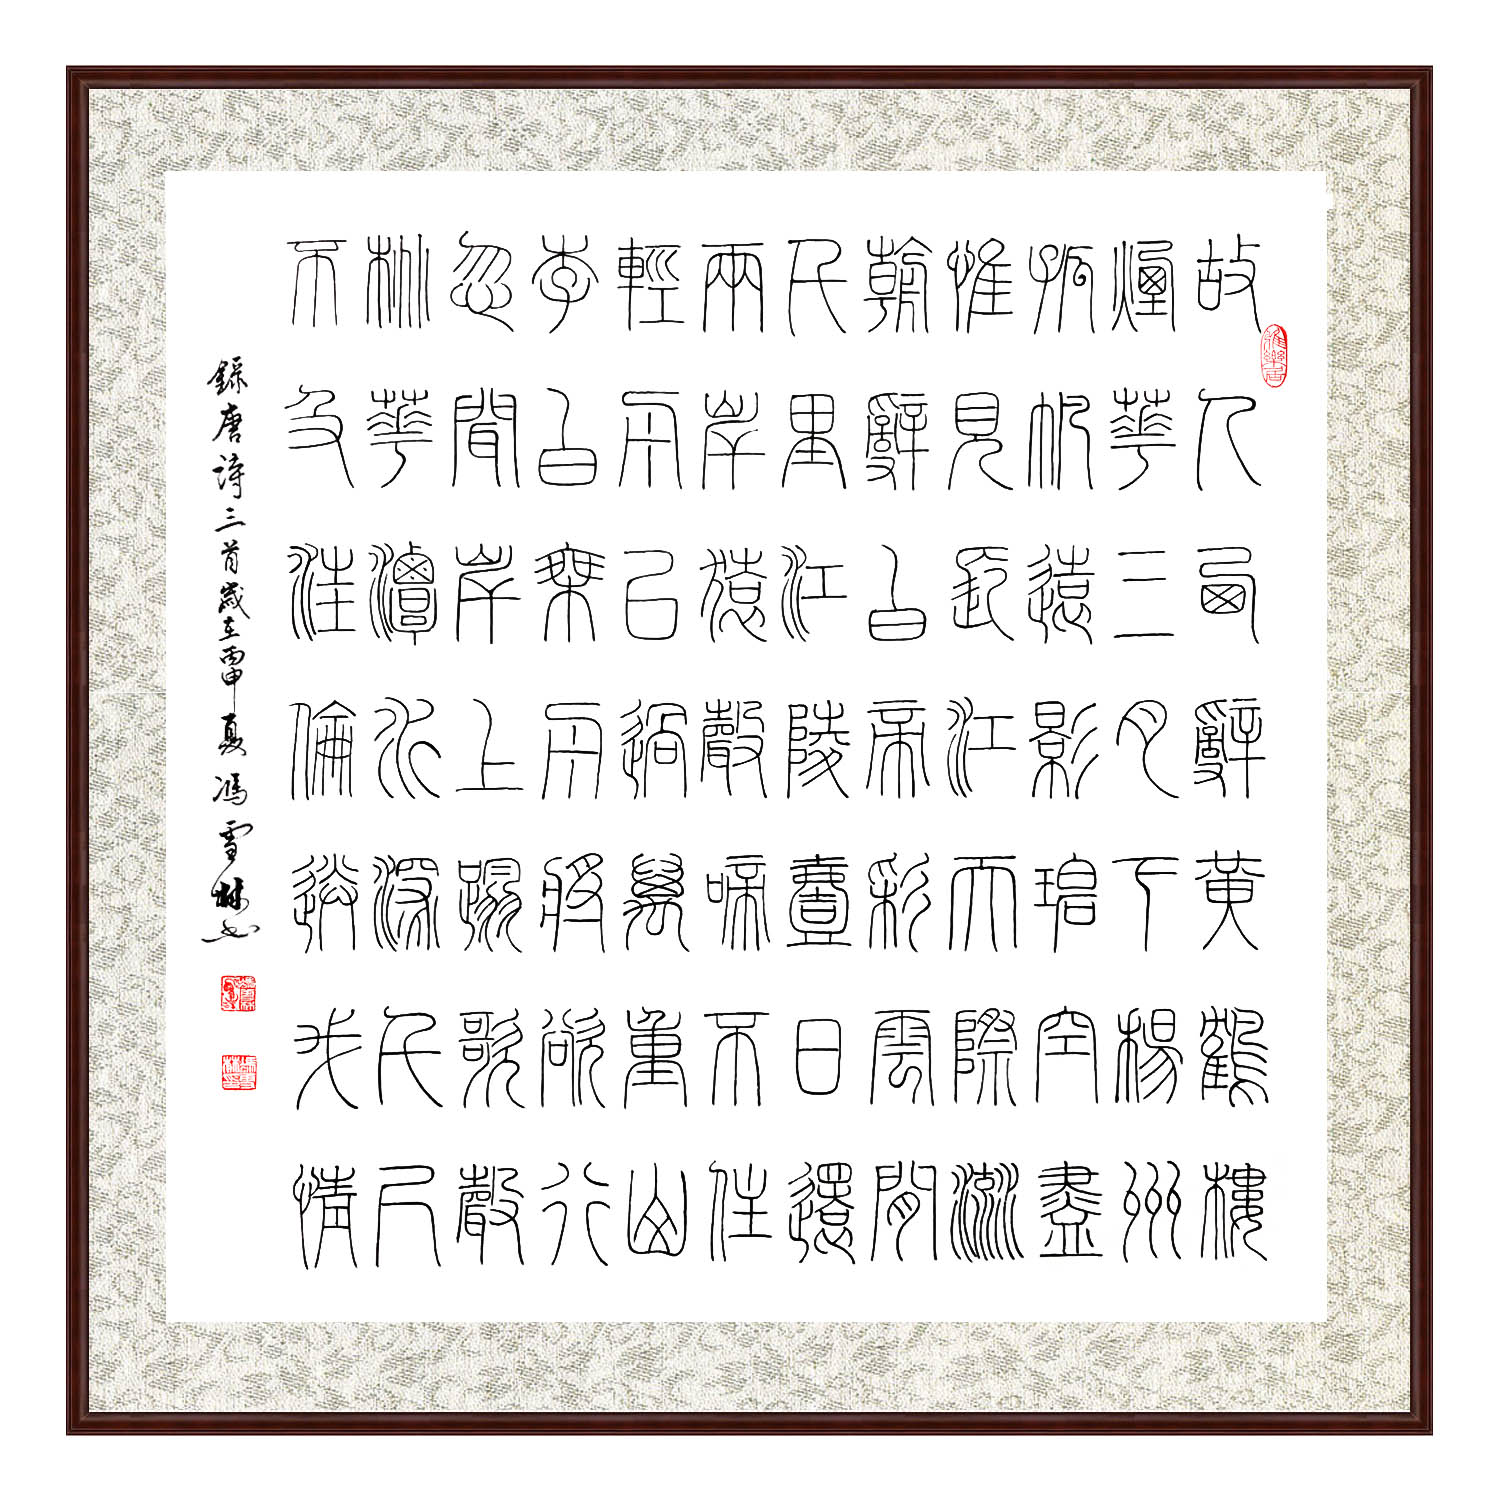 故人西辭黃鶴樓
煙華三月下楊州
孤帆遠影碧空盡
惟見長江天際流
朝辭白帝彩雲間
千里江陵壹日還
兩岸猿聲啼不住
輕舟已過萬重山
李白乘舟將欲行
忽聞岸上踏歌聲
桃華潭水深千尺
不及汪倫送我情
錄唐詩三首歲在丙申夏馮雪林書
雅樂居